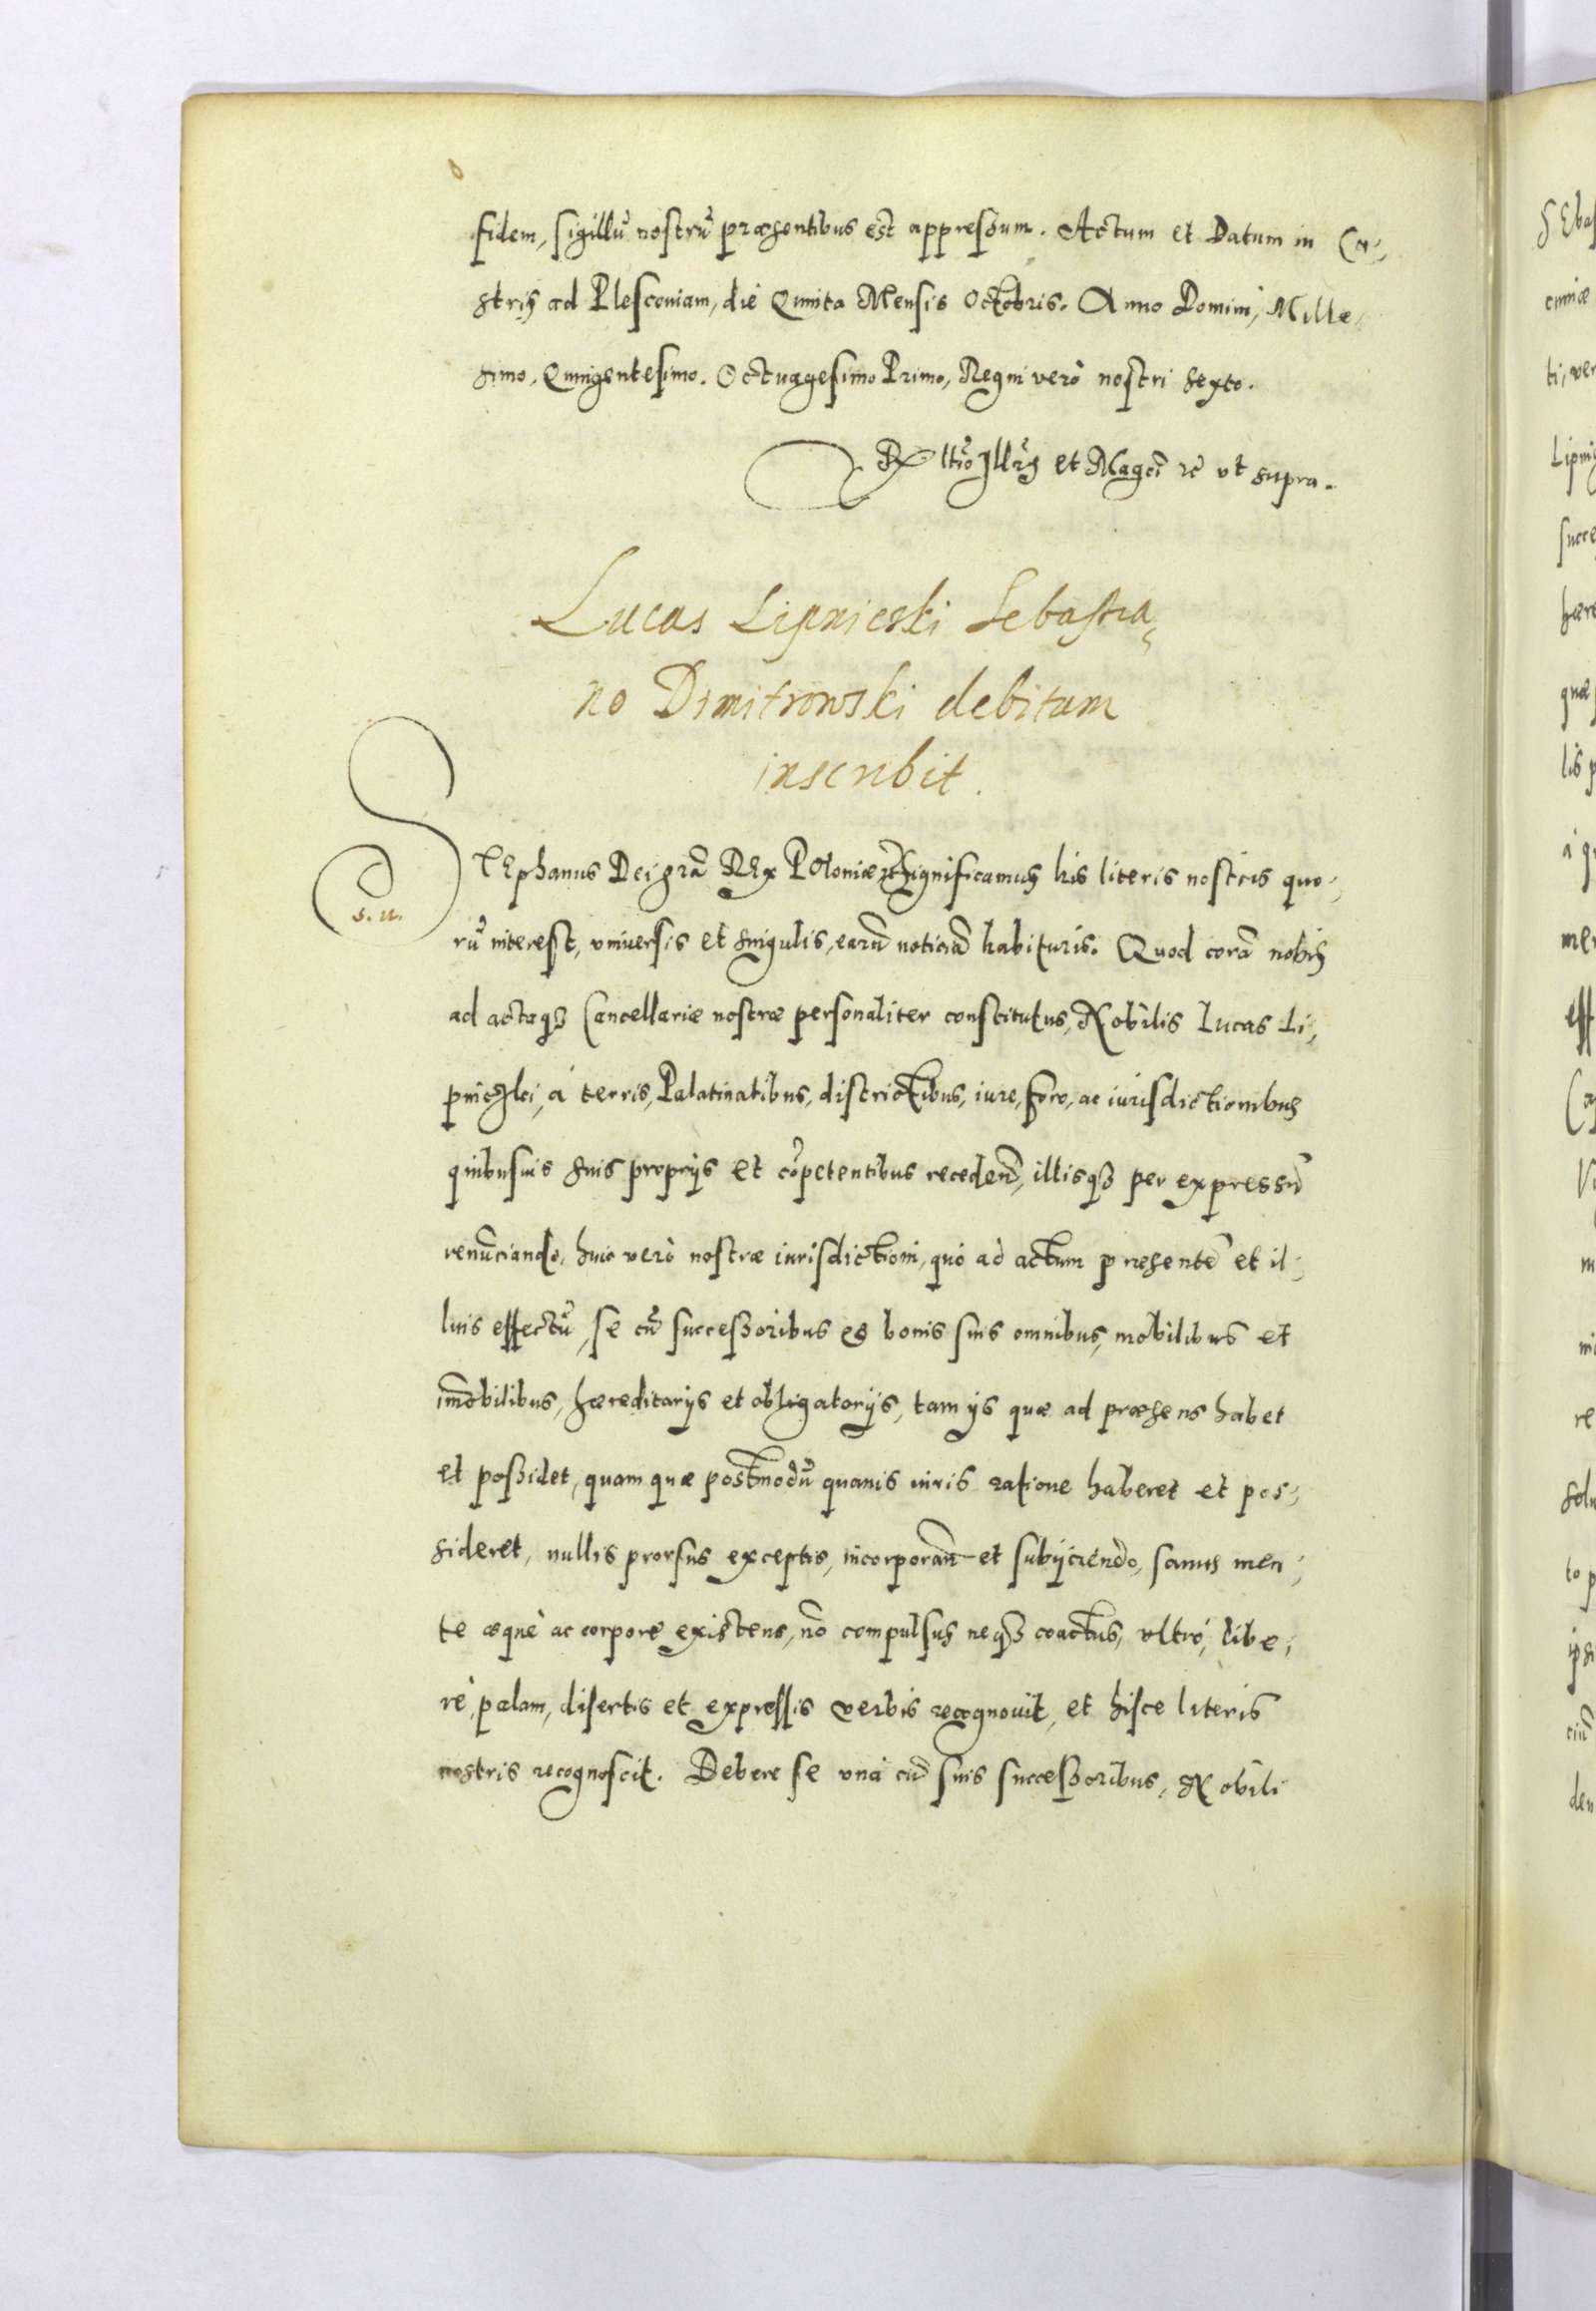 fidem, sigillũ nostrũ præsentibus est appressum. Actum et Datum in Ca-
stris ad Plesconiam, die Quinta Mensis Octobris. Anno Domini, Mille-
simo, Quingentesimo. Octuagesimo Primo, Regni verò nostri Sexto.
Rltio Illris et Magci rc vt supra.
Lucas Lipnicski Sebastia-
no Dmitrowski debitum
inscribit.
STEphanus Dei gra͂ REx Poloniæ rc Significamus his literis nostris quo-
rũ interest, vniversis et singulis, earũ noticiã habituris. Quod corã nobis
ad actaqꝫ Cancellariæ nostræ personaliter constitutus, Nobilis Lucas Li-
s. n.
à terris, Palatinatibus, districtibus, iure, foro, ac iurisdictionibus
quibusuis suis proprijs et cõpetentibus receden͂, illisqꝫ per expressũ
renũciando, huic verò nostræ iurisdictioni, quò ad actum præsentẽ et il-
lius effectũ, se cũ successoribus et bonis suis omnibus, mobilibus et
im͂obilibus, hæreditarijs et obligatorijs, tam ijs quæ ad præsens habet
et possidet, quam quæ postmodũ quauis iuris ratione haberet et pos-
sideret, nullis prorsus exceptis, incorporan͂ et subijciendo, sanus men-
te æquè ac corpore existens, nõ compulsus neqꝫ coactus, vltrò, libe-
rè, palam, disertis et expressis verbis recognouit, et hisce literis
nostris recognoscit. Debere se vnà cũ suis successoribus, Nobili